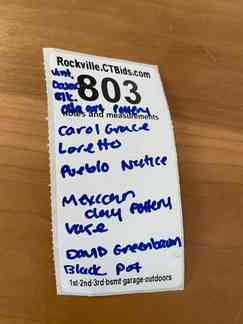 Rockville.CTBids.com
803
Notes and measurements
Pottery
Carol Grace
Loretto
Pueblo Native
Mexican
clay Pottery
Vase
David Greenbaum
Black Pot
1st-2nd-3rd-bsmt-garage-outdoors